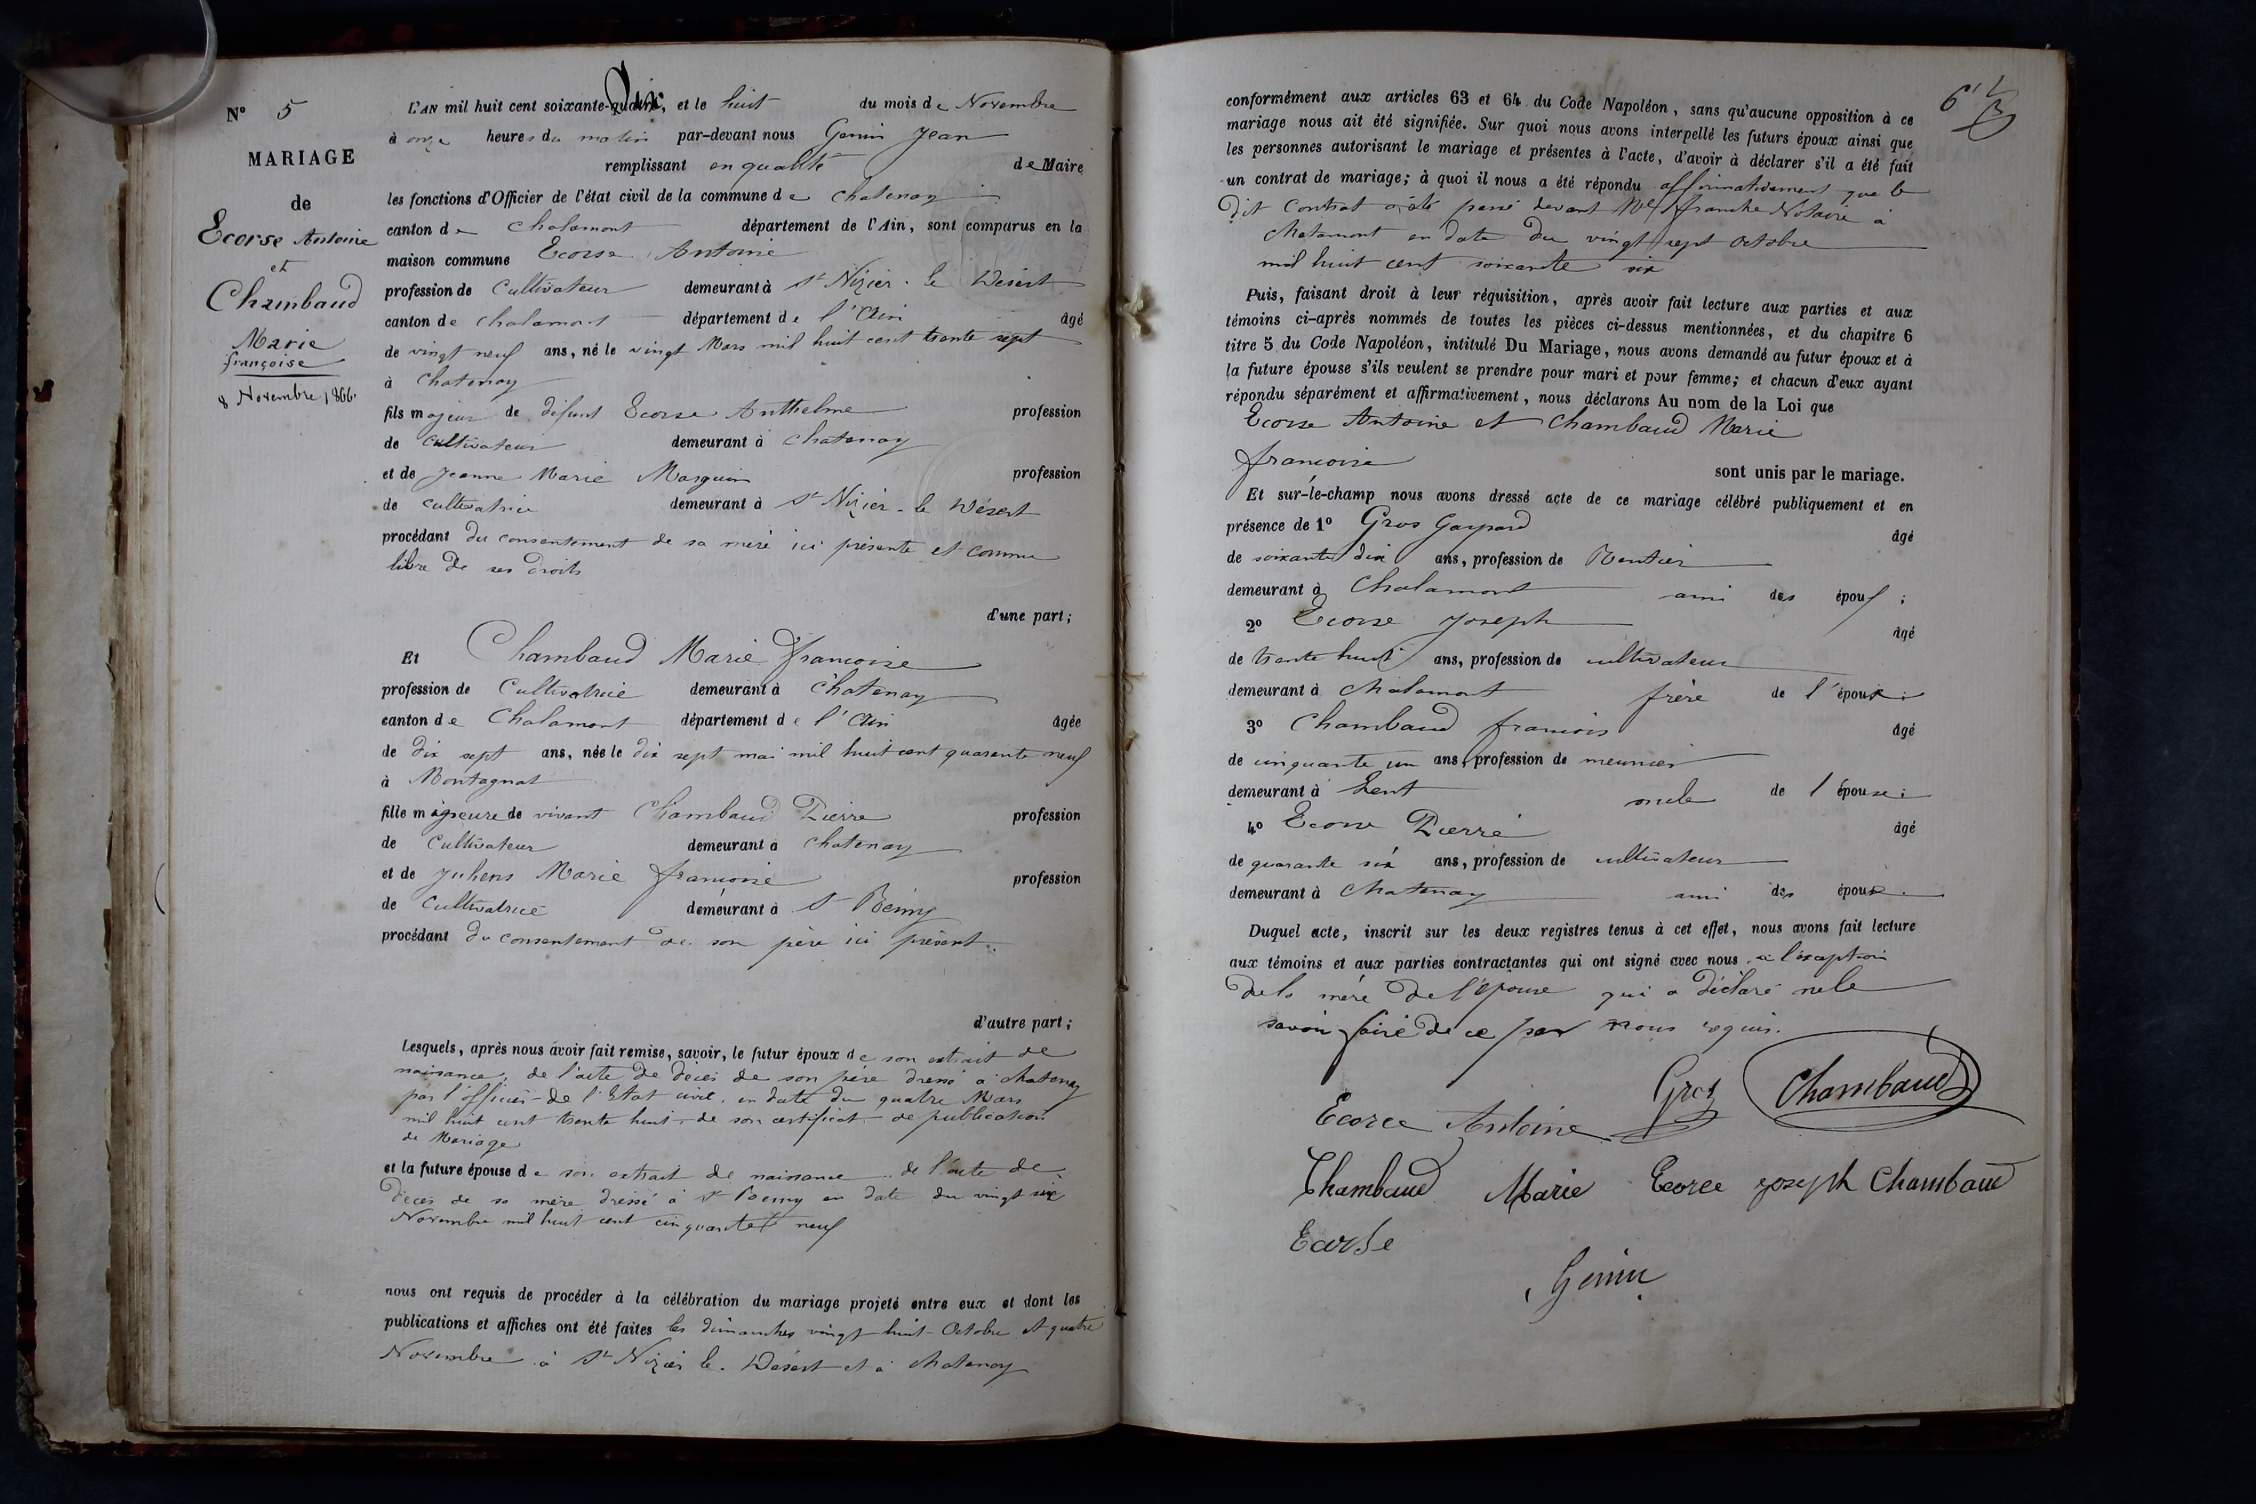 N° 5
MARIAGE
de
Ecorse Antoine
et
Chambaud
Marie
françoise
8 Novembre 1866.
L'AN mil huit cent soixante-Six, et le huit du mois de Novembre
à onze heures du matin par-devant nous Genin Jean
remplissant en qualité de Maire
les fonctions d'Officier de l'état civil de la commune de chatenay
canton de chalamont département de l'Ain, sont comparus en la
maison commune Ecorse Antoine
profession de Cultivateur demeurant à St Nizier. le Désert
canton de chalamont département de l'Ain âgé
de vingt neuf ans, né le vingt Mars mil huit cent trente sept
à Chatenay
fils majeur de défunt Ecorse Anthelme profession
de cultivateur demeurant à chatenay
et de Jeanne Marie Marguin profession
de cultivatrice demeurant à St Nizier. le Désert
procédant du consentement de sa mère ici présente et comme
libre de ses droits
d'une part;
Et Chambaud Marie françoise
profession de Cultivatrice demeurant à Chatenay
canton de Chalamont département de l'Ain âgée
de dix sept ans, née le dix sept mai mil huit cent quarante neuf
à Montagnat
fille mineure de vivant Chambaud Pierre profession
de Cultivateur demeurant à chatenay
et de Juhens Marie françoise profession
de Cultivatrice demeurant à St Rémy
procédant du consentement de son père ici présent.
d'autre part;
Lesquels, après nous avoir fait remise, savoir, le futur époux de son extrait de
naissance, de l'acte de décès de son père dressé à chatenay
par l'officier de l'Etat civil, en date du quatre Mars
mil huit cent trente huit, de son certificat de publication
de Mariage
et la future épouse de son extrait de naissance de l'acte de
décès de sa mère dressé à St Remy en date du vingt six
Novembre mil huit cent cinquante neuf
nous ont requis de procéder à la célébration du mariage projeté entre eux et dont les
publications et affiches ont été faites les dimanches vingt-huit Octobre et quatre
Novembre à St Nizier le. Désert et à chatenay
conformément aux articles 63 et 64 du Code Napoléon, sans qu'aucune opposition à ce
mariage nous ait été signifiée. Sur quoi nous avons interpellé les futurs époux ainsi que
les personnes autorisant le mariage et présentes à l'acte, d'avoir à déclarer s'il a été fait
un contrat de mariage; à quoi il nous a été répondu affirmativement que le
dit Contrat a été passé devant Me Notaire à
chalamont en date du vingt sept octobre
mil huit cent soixante six
Puis, faisant droit à leur réquisition, après avoir fait lecture aux parties et aux
témoins ci-après nommés de toutes les pièces ci-dessus mentionnées, et du chapitre 6
titre 5 du Code Napoléon, intitulé Du Mariage, nous avons demandé au futur époux et à
la future épouse s'ils veulent se prendre pour mari et pour femme; et chacun d'eux ayant
répondu séparément et affirmativement, nous déclarons Au nom de la Loi que
Ecorse Antoine et Chambaud Marie
françoise sont unis par le mariage.
Et sur-le-champ nous avons dressé acte de ce mariage célébré publiquement et en
présence de 1° Gros Gaspard âgé
de soixante dix ans, profession de Rentier
demeurant à Chalamont ami des époux;
2° Ecorse Joseph âgé
de trente huit ans, profession de cultivateur
demeurant à Chalamont frère de l'époux;
3° Chambaud francois âgé
de cinquante un ans, profession de meunier
demeurant à Lent oncle de l'épouse;
4° Ecorse Pierre âgé
de quarante six ans, profession de cultivateur
demeurant à Chatenay ami des époux.
Duquel acte, inscrit sur les deux registres tenus à cet effet, nous avons fait lecture
aux témoins et aux parties contractantes qui ont signé avec nous à l'exception
de la mère de l'époux qui a déclaré ne le
savoir faire de ce par nous requis.
Gros Chambaud
Ecorce Antoine
Chambaud Marie Ecorce joseph Chambaud
Ecorse
Genin